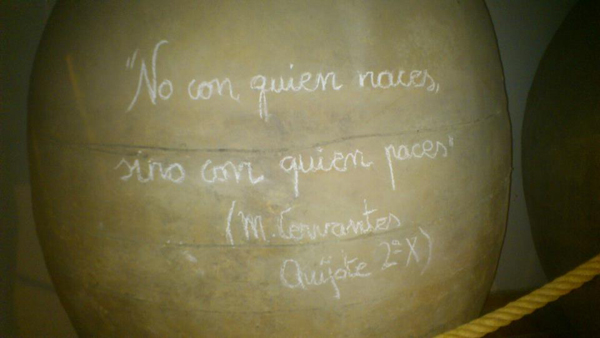 "No con quien naces,
sino con quien paces"
(M. Cervantes
Quijote 2ª X)